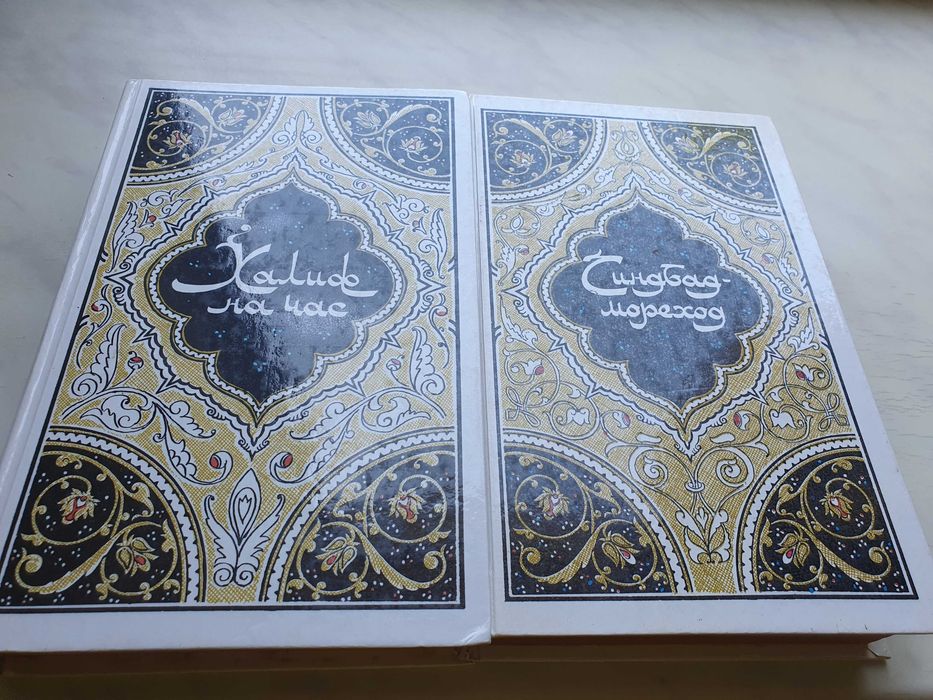 Халиф
на час
Синдбад-
мореход